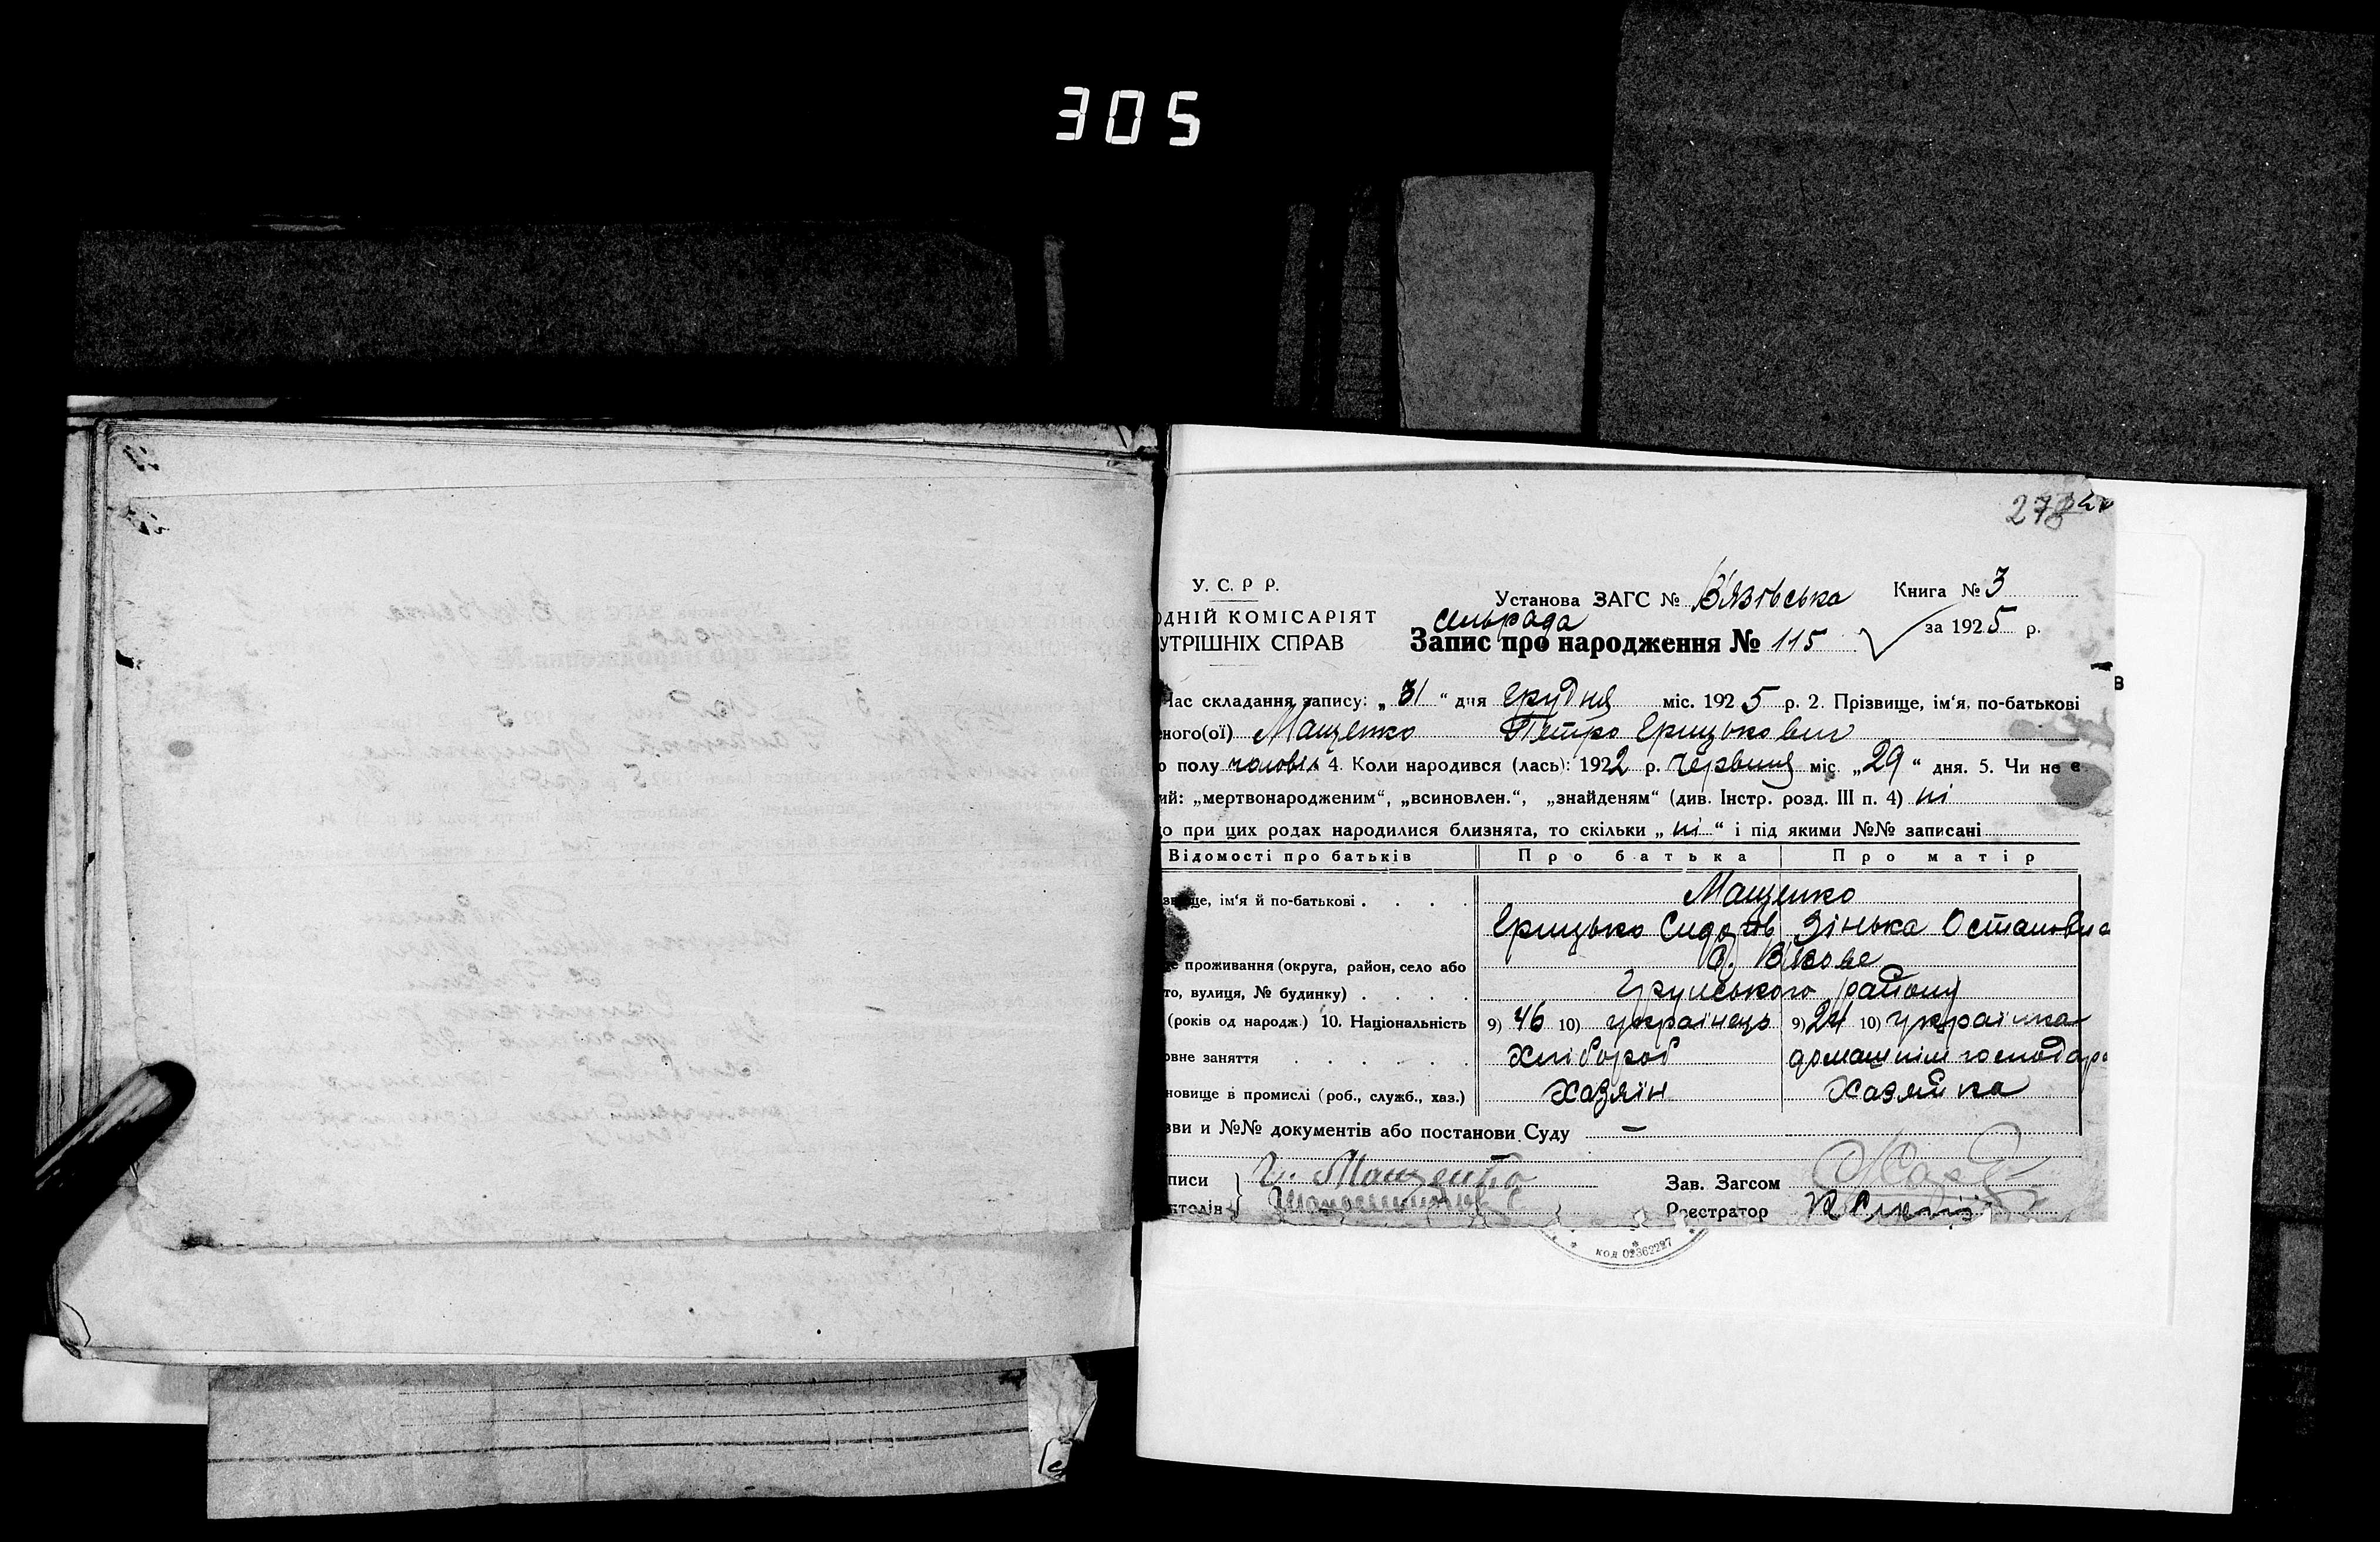 305
278
У. С. Р Р.
Установа ЗАГС № В'язівська Книга № 3
ОДНІЙ КОМІСАРІЯТ сільрада
за 1925 р.
УТРІШНІХ СПРАВ Запис про народження № 115
Час складання запису: „31“ дня Грудня міс. 1925 р. 2. Прізвище, ім'я, по-батькові
ного(ої) Мащенко Петро Грицькович
о полу чоловіч 4. Коли народився (лась): 1922 р. Червня міс. „29“ дня. 5. Чи не є
ий: „мертвонародженим“, „всиновлен.“, „знайденям“ (див. Інстр. розд. III п. 4) ні
о при цих родах народилися близнята, то скільки „ні“ і під якими №№ записані
Відомості про батьків Про батька Про матір
Мащенко
ще, ім'я й по-батькові . . . .
Грицько Сидорів Зінька Остаповна
проживання (округа, район, село або
то, вулиця, № будинку) . . . . Грунського району
(років од народж.) 10. Національність 9) 46 10) українець 9) 24 10) українка
овне заняття . . . . . Хлібороб домашнім господар
новище в промислі (роб., служб., хаз.) Хазяїн Хазяйка
зви и №№ документів або постанови Суду —
писи Г. Мащенко Зав. Загсом
Реєстратор
код 02362297
В